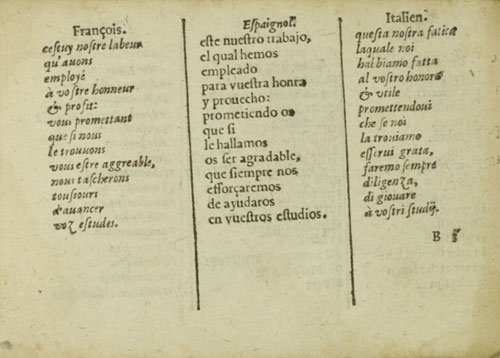 François.
cestuy nostre labeur
qu'auons
employé
à vostre honneur
& profit:
vous promettant
que si nous
le trouuons
vous estre aggreable,
nous tascherons
tousiours
d'auancer
voz estudes.
Espaignol.
este nuestro trabajo,
el qual hemos
empleado
para vuestra honra
y prouecho:
prometiendo os
que si
le hallamos
os ser agradable,
que siempre nos
esforçaremos
de ayudaros
en vuestros estudios.
Italien.
questa nostra fatica
laquale noi
habbiamo fatta
al vostro honore
& vtile
promettendoui
che se noi
la trouiamo
esserui grata,
faremo sempre
diligenza,
di giouare
à vostri studij.
B